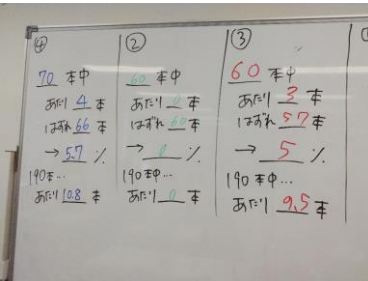 ④
70 本中
あたり 4 本
はずれ 66 本
→ 5.7 %
190本…
あたり 10.8 本
②
60 本中
あたり 0 本
はずれ 60 本
→ 0 %
190本中…
あたり 0 本
③
60 本中
あたり 3 本
はずれ 57 本
→ 5 %
190本中…
あたり 9.5 本